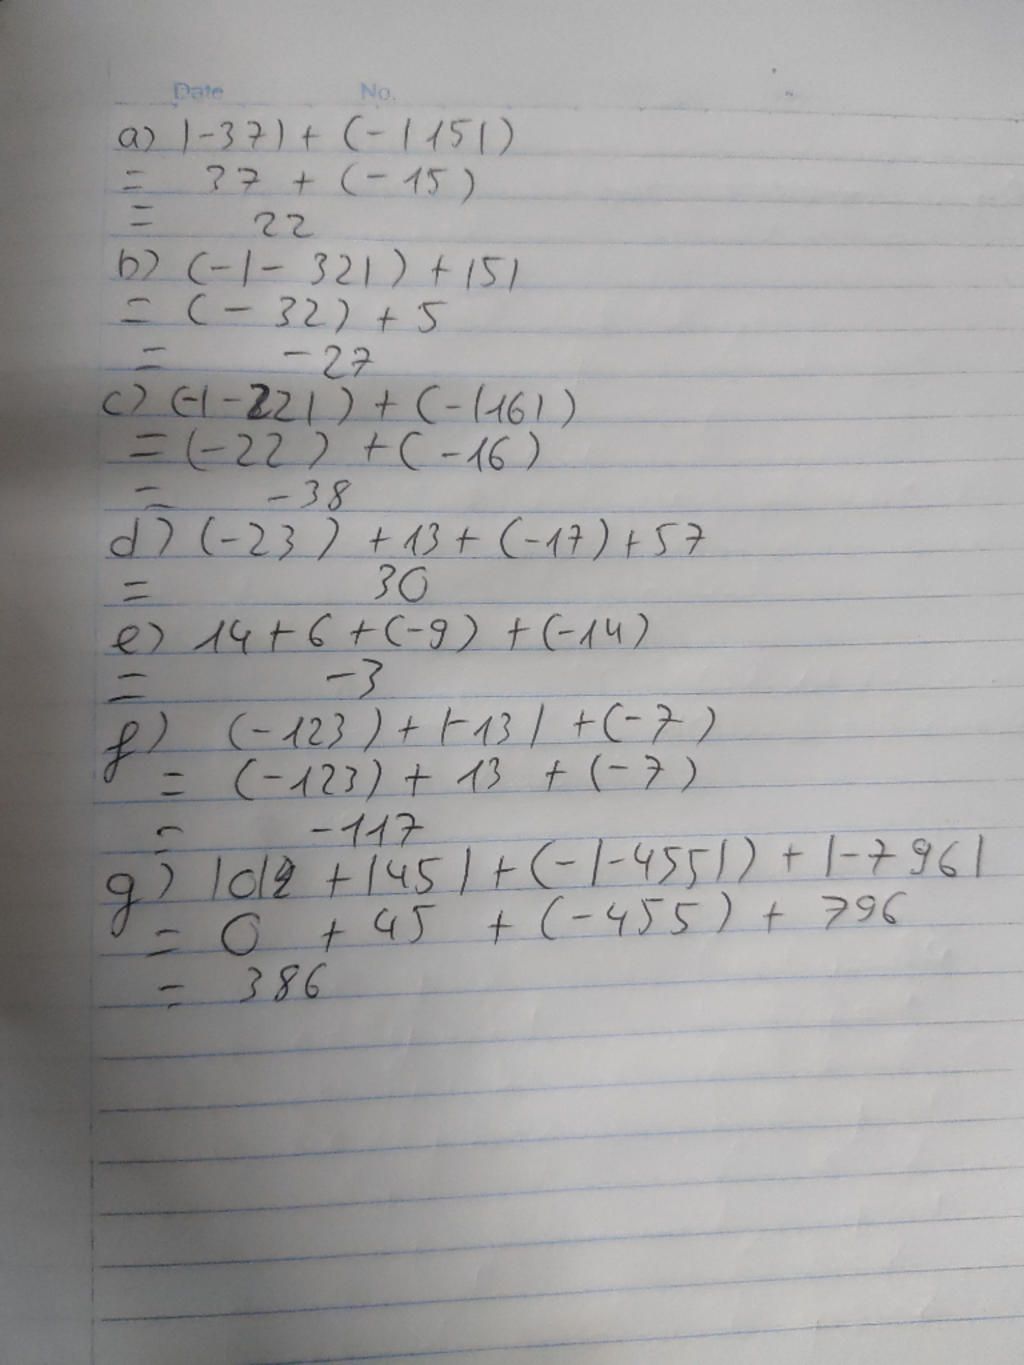 Date No.
a) |-37| + (-|15|)
= 37 + (-15)
= 22
b) (-|-32|) + |5|
= (-32) + 5
= -27
c) (-|-22|) + (-|16|)
= (-22) + (-16)
= -38
d) (-23) + 13 + (-17) + 57
= 30
e) 14 + 6 + (-9) + (-14)
= -3
f) (-123) + |-13| + (-7)
= (-123) + 13 + (-7)
= -117
g) |0| + |45| + (-|-455|) + |-796|
= 0 + 45 + (-455) + 796
= 386